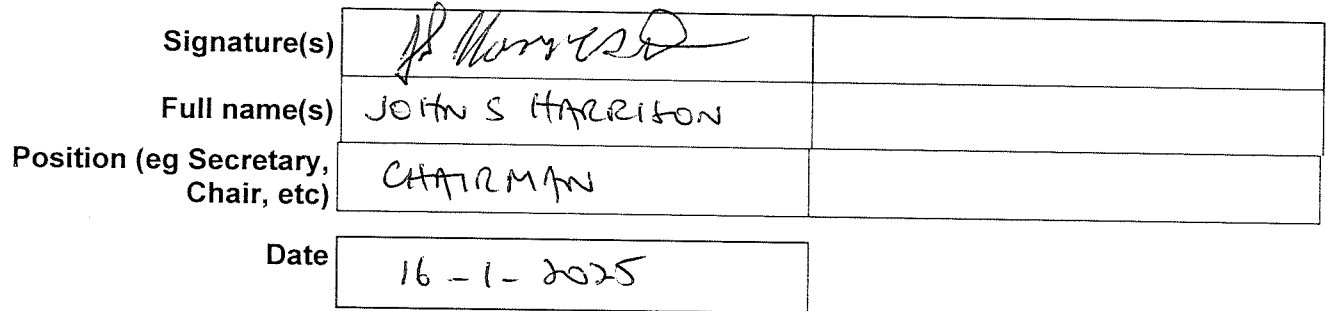 Signature(s)
Full name(s) JOHN S HARRISON
Position (eg Secretary,
Chair, etc) CHAIRMAN
Date 16 - 1 - 2025